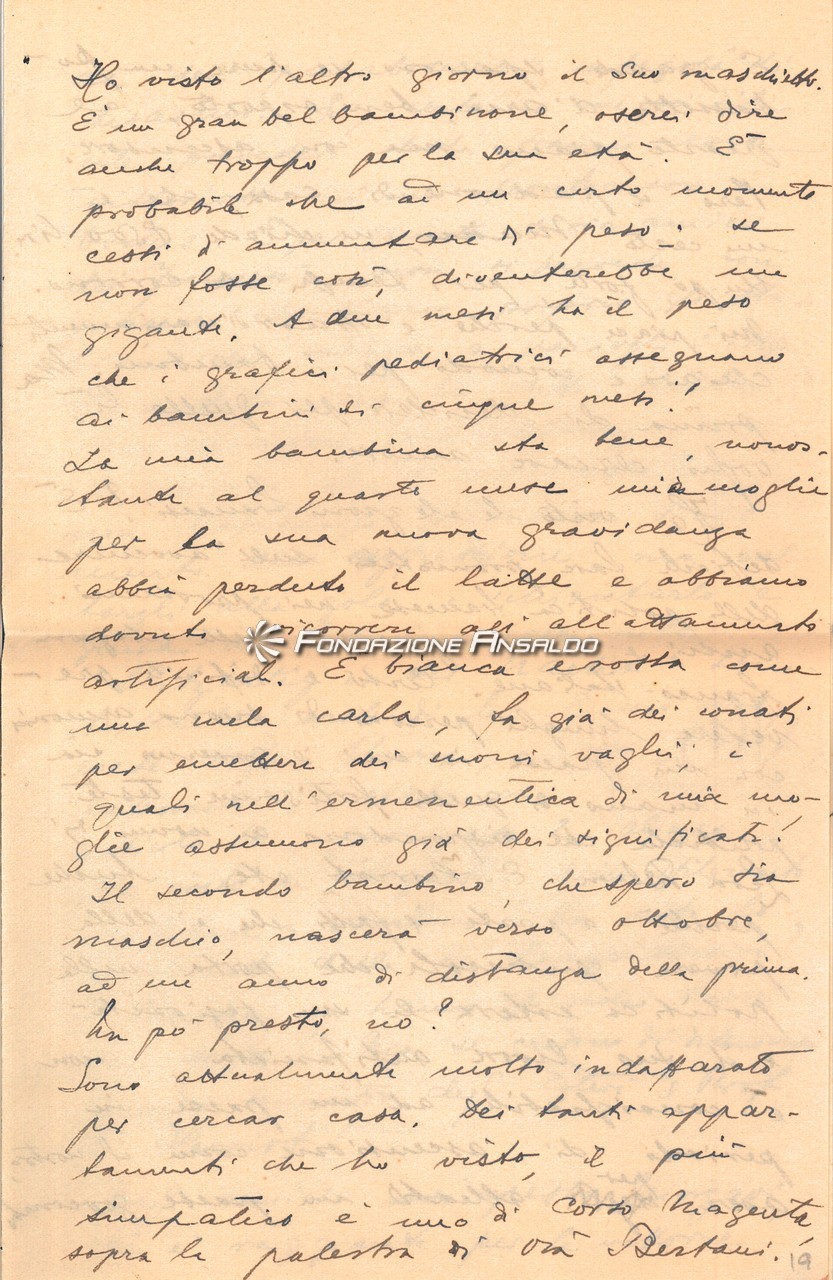 Ho visto l'altro giorno il Suo maschietto.
È un gran bel bambinone, oserei dire
anche troppo per la sua età. È
probabile che ad un certo momento
cessi di aumentare di peso: se
non fosse così, diventerebbe un
gigante. A due mesi ha il peso
che i grafici pediatrici assegnano
ai bambini di cinque mesi!
La mia bambina sta bene, nonos-
tante al quarto mese mia moglie
per la sua nuova gravidanza
abbia perduto il latte e abbiamo
dovuto ricorrere agli allattamento
FONDAZIONE ANSALDO
artificiali. È bianca e rossa come
una mela carla, fa già dei conati
per emettere dei suoni vaghi, i
quali nell'ermeneutica di mia mo-
glie assumono già dei significati!
Il secondo bambino, che spero sia
maschio, nascerà verso ottobre,
ad un anno di distanza della prima.
Un pò presto, no?
Sono attualmente molto indaffarato
per cercar casa. Dei tanti appar-
tamenti che ho visto, il più
simpatico è uno di Corso Magenta,
sopra la palestra di Via Bertani.
19